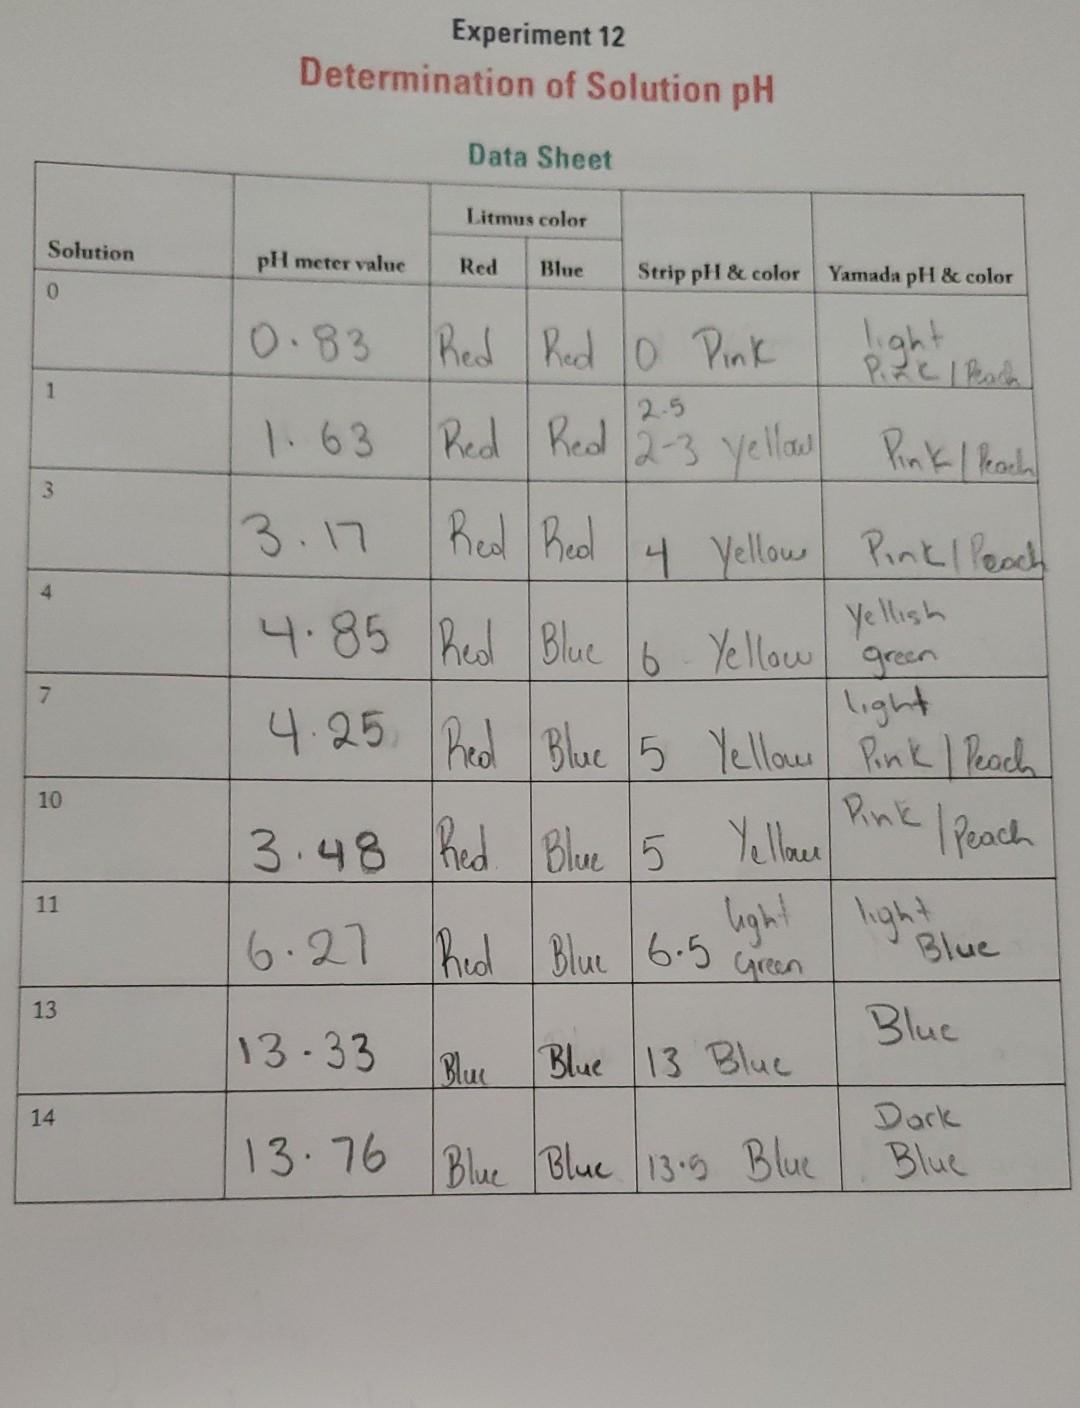 Experiment 12
Determination of Solution pH
Data Sheet
Litmus color
Solution pH meter value Red Blue Strip pH & color Yamada pH & color
0
0.83 Red Red 0 Pink light
Pink / Peach
1
2.5
1.63 Red Red 2-3 yellow Pink / Peach
3
3.17 Red Red 4 Yellow Pink / Peach
4
4.85 Red Blue 6 Yellow Yellish
green
7
4.25 Red Blue 5 Yellow light
Pink / Peach
10
3.48 Red Blue 5 Yellow Pink / Peach
11
6.27 Red Blue 6.5 light
Green light
Blue
13
13.33 Blue Blue 13 Blue Blue
14
13.76 Blue Blue 13.5 Blue Dark
Blue